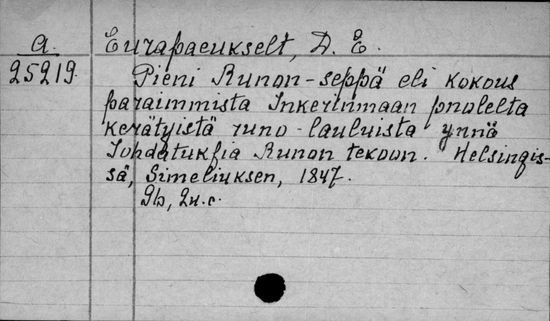 a. Eurapaeukselt, D. E.
25219. Pieni Runon-seppä eli kokous
paraimmista Inkerinmaan puolelta
kerätyistä runo-lauluista ynnä
Johdatuksia Runon tekoon. Helsingis-
sä, Simeliuksen, 1847.